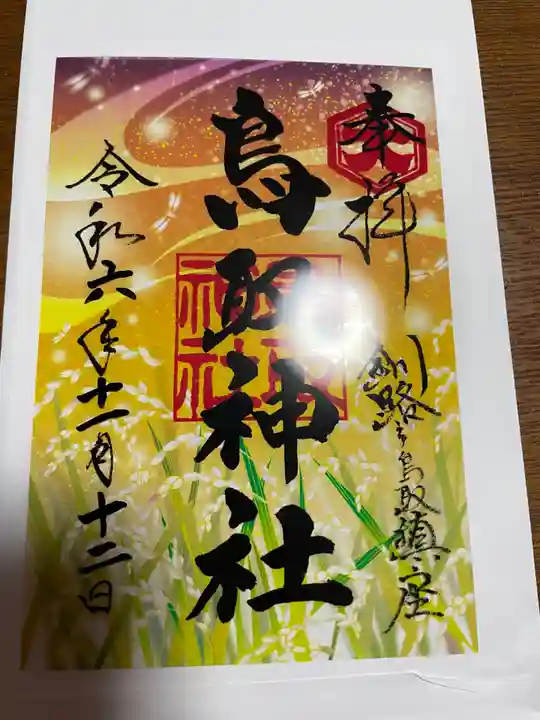 奉拝
釧路市鳥取鎮座
鳥取神社
令和六年十一月十二日